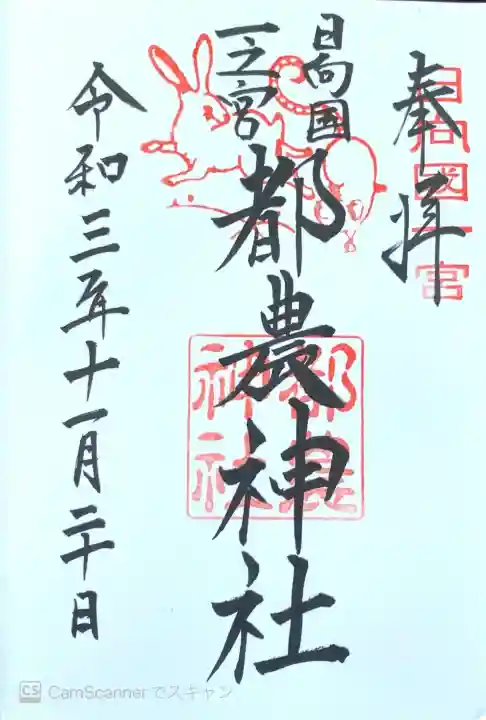 奉拝
日向国一宮
日向国
一之宮
都農神社
都農神社
令和三年十一月二十日
CS CamScanner でスキャン